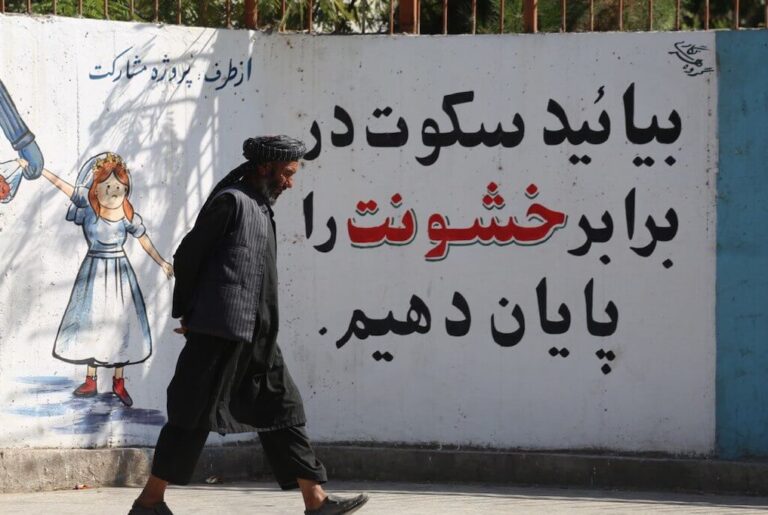 از طرف: پروژه مشارکت
بیائید سکوت در
برابر خشونت را
پایان دهیم.